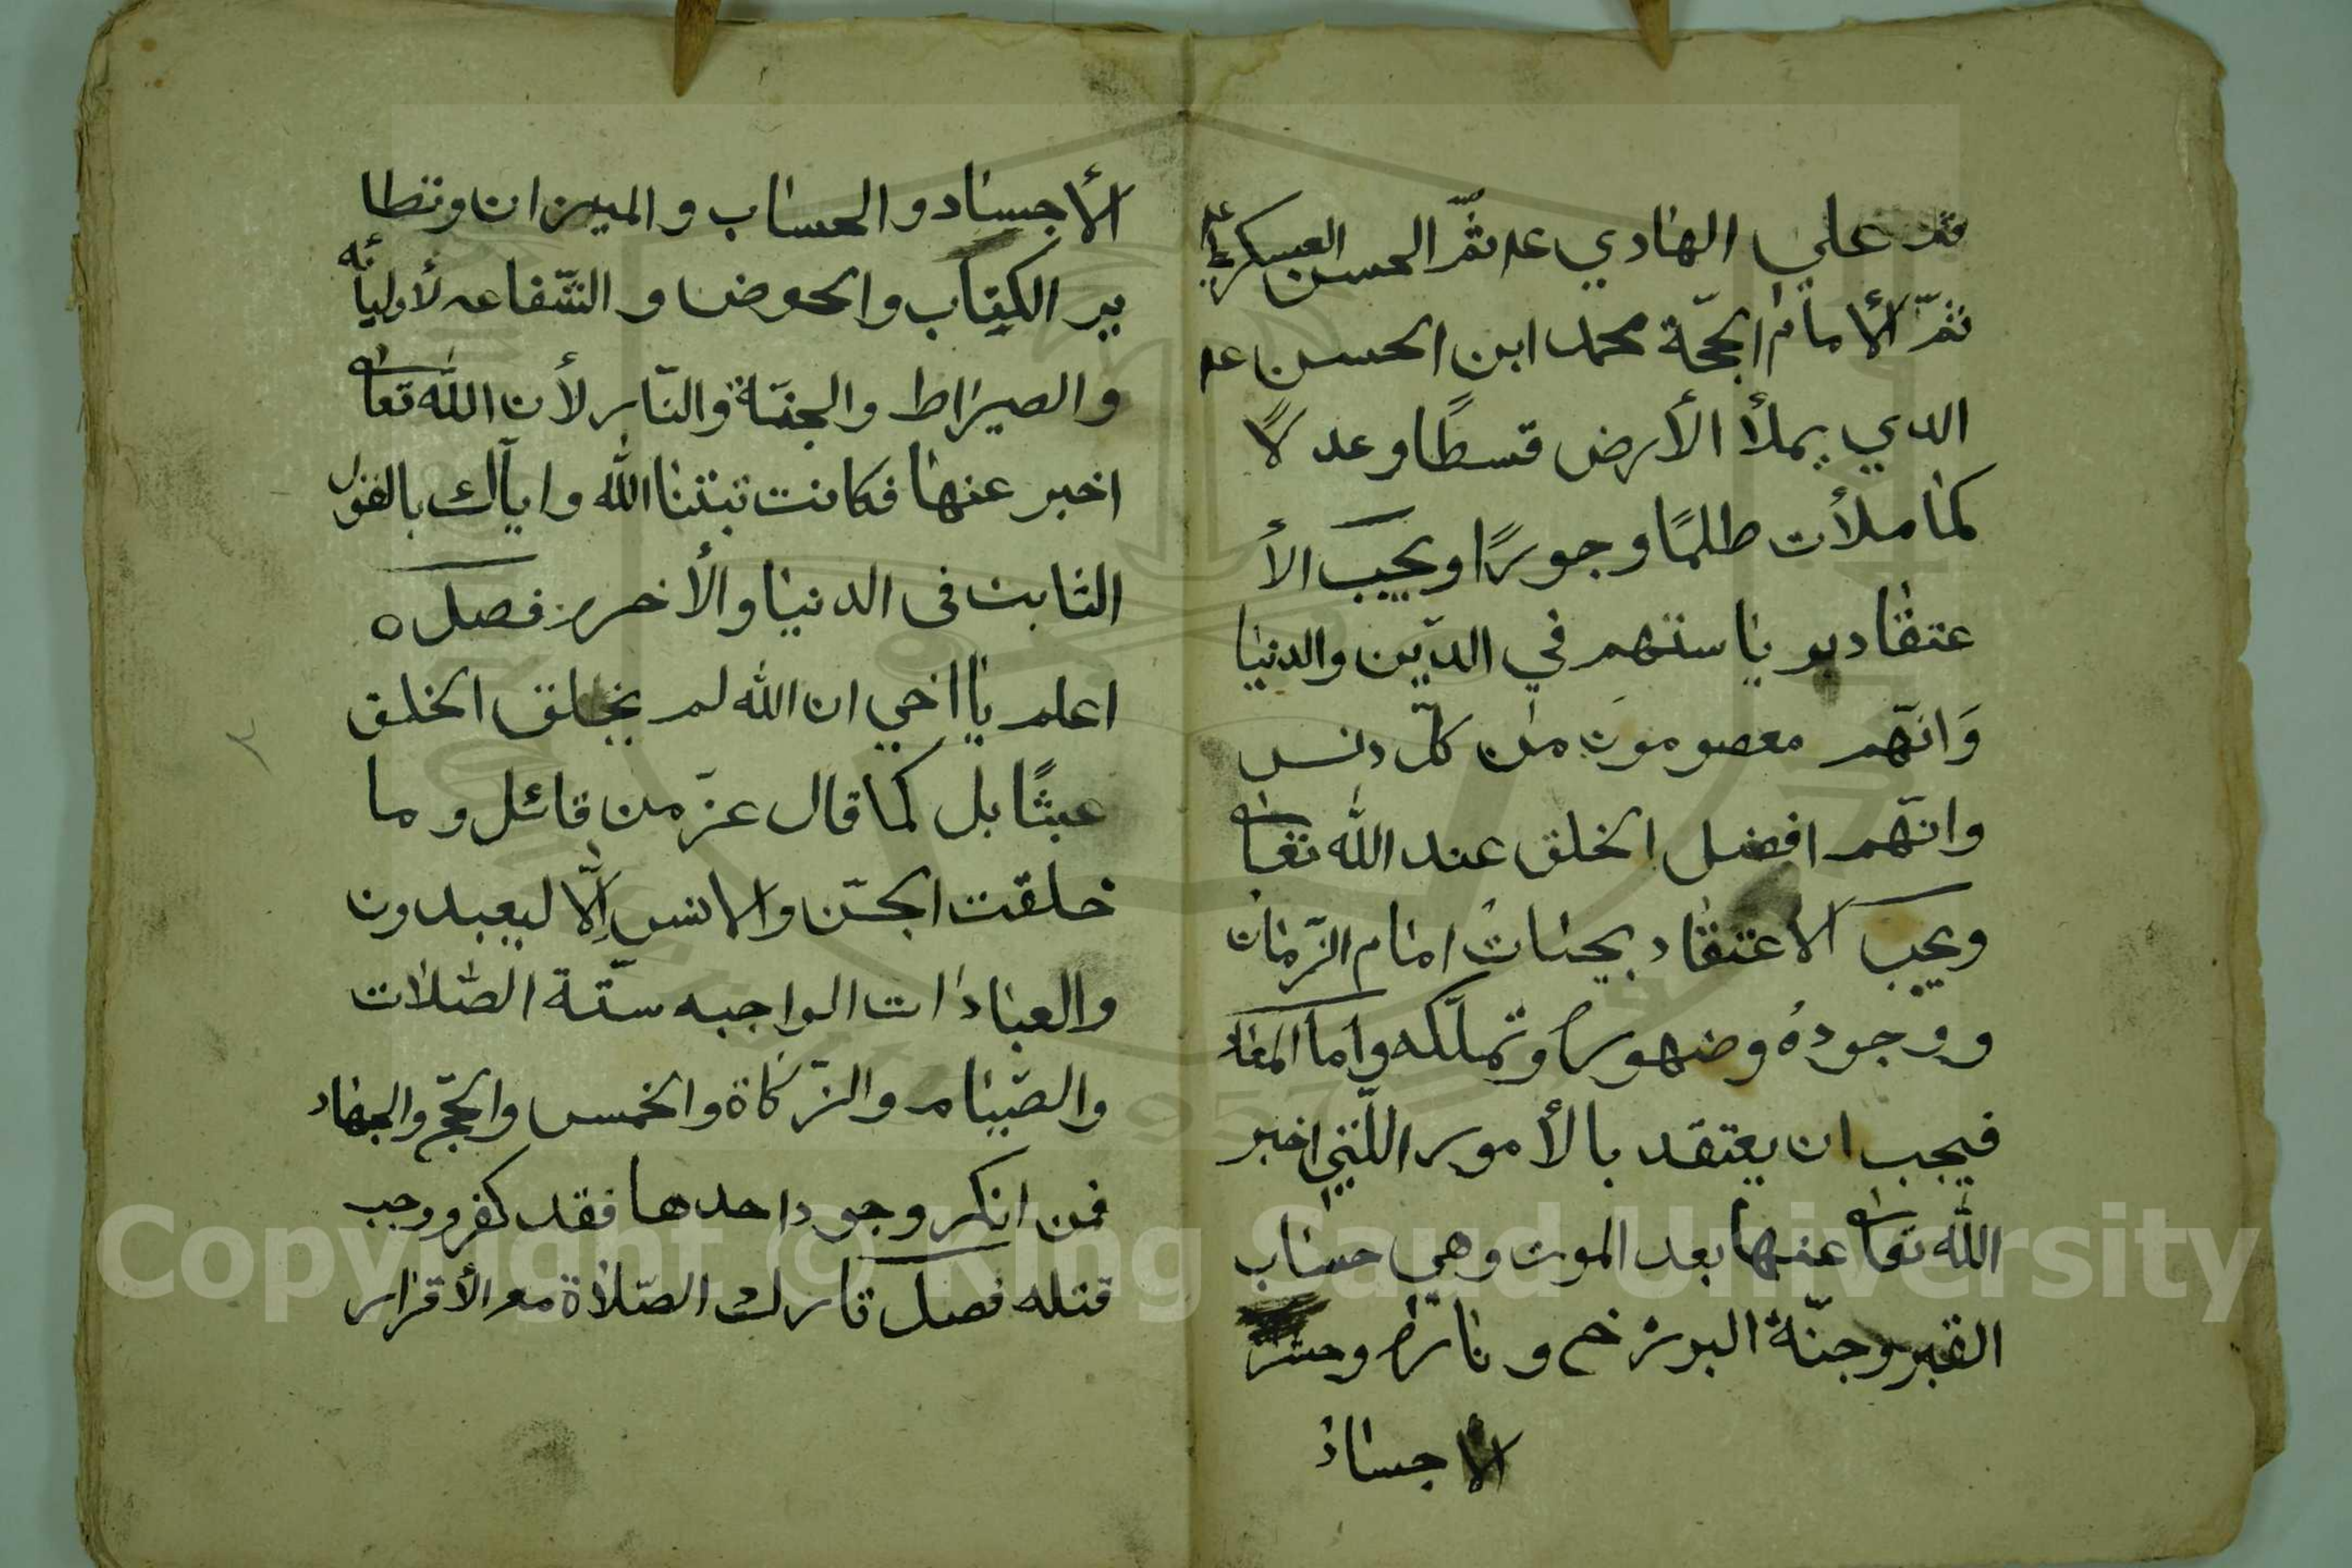 ثم علي الهادي عم ثمّ الحسن العسكري عم
ثمّ الأمام الحجّة محمد ابن الحسن عم
الدي يملأ الأرض قسطًا وعدلًا
كما ملأت طلمًا وجورًا ويجب الأ
عتقاد بو ياستهم في الدّين والدنيا
وَانّهم معصومون من كلّ دنس
وانّهم افضل الخلق عند الله تعالى
ويجب الاعتقاد بحيات امام الزّمان
ووجودهُ وضهوره وتملّكه واما المعاد
فيجب ان يعتقد بالأمور اللّتي اخبر
الله تعالى عنها بعد الموت وهي حساب
القبر وجنّة البرزخ وناره وحشر
الأجساد
الأجساد والحساب والميزان وتطا
ير الكتاب والحوض والشّفاعه لأوليائه
والصيراط والجنّة والنّار لأن الله تعالى
اخبر عنها فكانت ثبتنا الله واياك بالقول
الثابت في الدنيا والأخره فصل ه
اعلم يا اخي ان الله لم يخلق الخلق
عبثًا بل كما قال عزّ من قائل وما
خلقت الجنّ والانس اِلّا ليعبدون
والعبادات الواجبه ستّة الصّلات
والصّيام والزّكاة والخمس والحجّ والجهاد
فمن انكر وجود احدها فقد كفر ووجب
قتله فصل تارك الصّلاة مع الأقرار
Copyright © King Saud University
1957